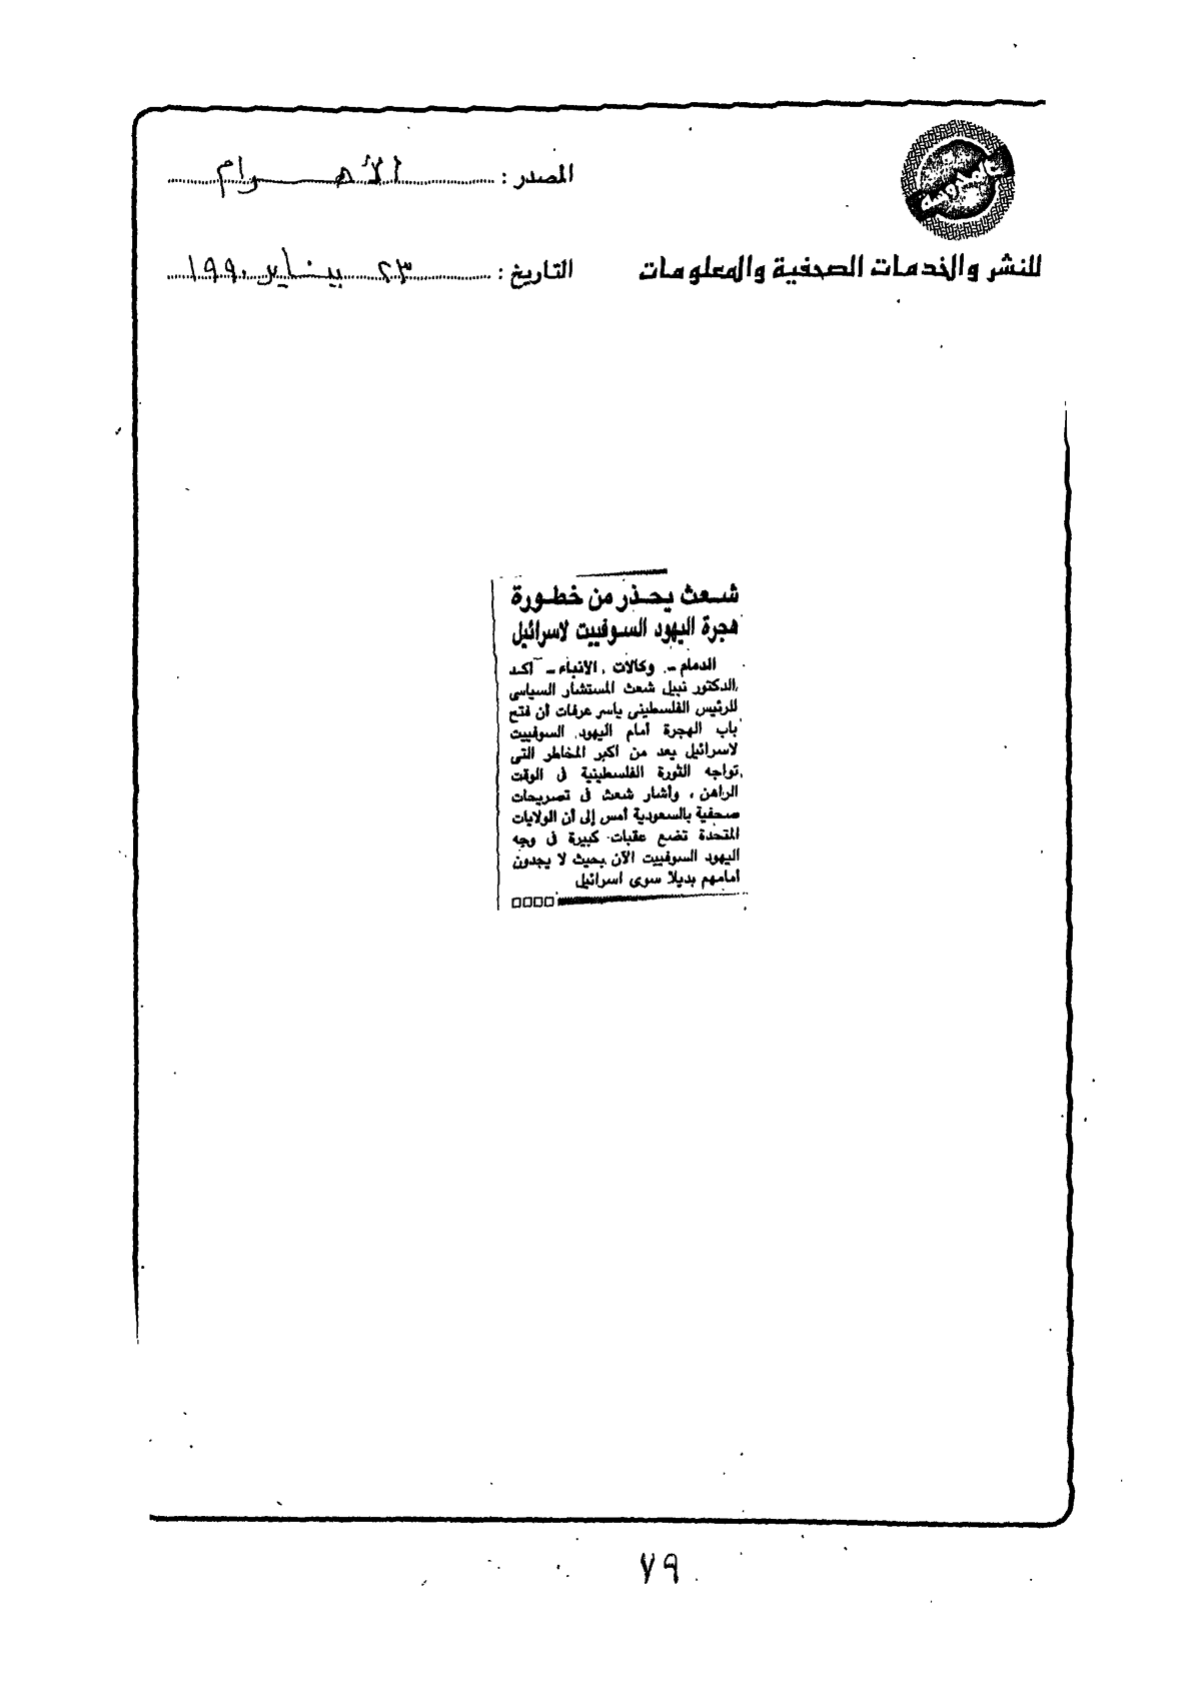 المحروسة
المصدر : الأهرام
للنشر والخدمات الصحفية والمعلومات
التاريخ : ٢٣ يناير ١٩٩٠
شعث يحذر من خطورة
هجرة اليهود السوفييت لاسرائيل
الدمام - وكالات الأنباء - أكد
الدكتور نبيل شعث المستشار السياسى
للرئيس الفلسطينى ياسر عرفات أن فتح
باب الهجرة أمام اليهود السوفييت
لاسرائيل يعد من أكبر المخاطر التى
تواجه الثورة الفلسطينية فى الوقت
الراهن ، وأشار شعث فى تصريحات
صحفية بالسعودية أمس إلى أن الولايات
المتحدة تضع عقبات كبيرة فى وجه
اليهود السوفييت الآن بحيث لا يجدون
أمامهم بديلا سوى اسرائيل
٧٩